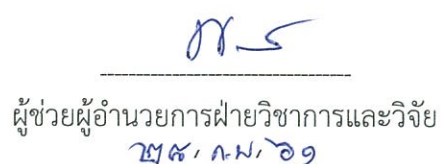 ผู้ช่วยผู้อำนวยการฝ่ายวิชาการและวิจัย
๒๘, ก.พ, ๖๑